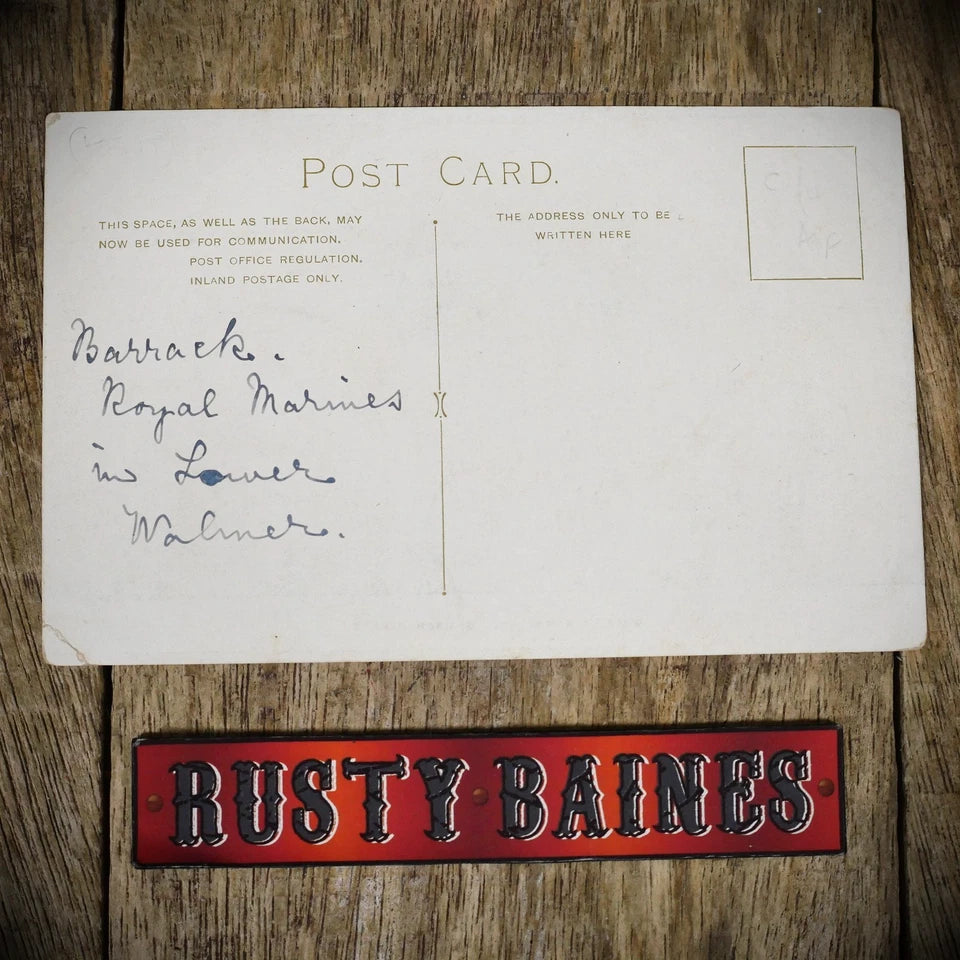 POST CARD.
THIS SPACE, AS WELL AS THE BACK, MAY
NOW BE USED FOR COMMUNICATION.
POST OFFICE REGULATION.
INLAND POSTAGE ONLY.
THE ADDRESS ONLY TO BE
WRITTEN HERE
Barrack.
Royal Marines
in Lower
Walmer.
RUSTY BAINES